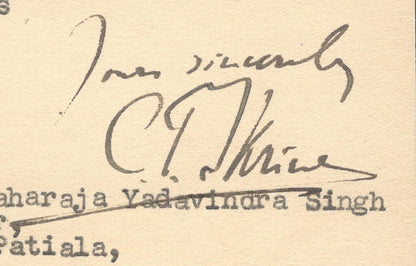 s
Yours sincerely
C.P. Skrine
aharaja Yadavindra Singh
r,
Patiala,